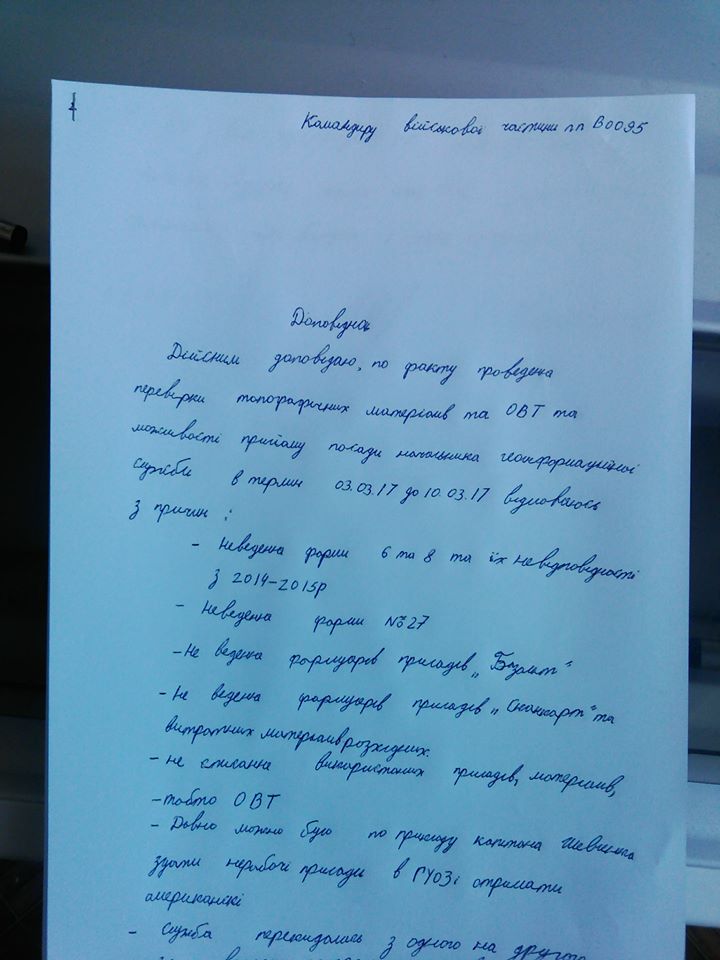 1
Командиру військової частини пп В0095
Доповідна
Дійсним доповідаю, по факту проведена
перевірки топографічних матеріалів та ОВТ та
можливості прийому посади начальника геоінформаційної
служби в термін 03.03.17 до 10.03.17 відмовляюсь
з причин :
- Неведення форми 6 та 8 та їх невідповідності
з 2014-2015р
- Неведення форми №27
- Не ведення формулярів приладів „Базальт"
- Не ведення формулярів приладів „Сканкарт" та
витратних матеріалів розхідних.
- не списання використаних приладів, матеріалів,
- тобто ОВТ
- Давно можно було по прикладу капитана Шевченка
здати неробочі прилади в і отримати
американскі
- Служба перекидалась з одного на другого